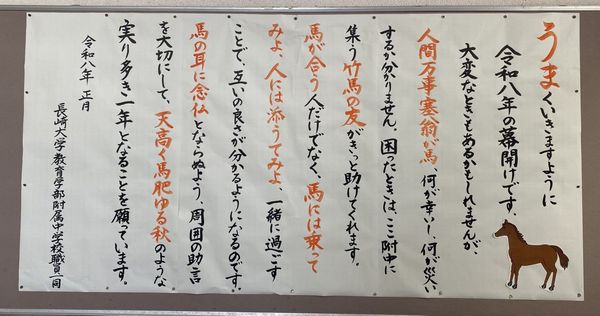 うまくいきますように
令和八年の幕開けです。
大変なときもあるかもしれませんが、
人間万事塞翁が馬、何が幸いし、何が災い
するか分かりません。困ったときは、ここ附中に
集う竹馬の友がきっと助けてくれます。
馬が合う人だけでなく、馬には乗って
みよ、人には添うてみよ、一緒に過ごす
ことで、互いの良さが分かるようになるのです。
馬の耳に念仏とならぬよう、周囲の助言
を大切にして、天高く馬肥ゆる秋のような
実り多き一年となることを願っています。
令和八年 正月
長崎大学教育学部附属中学校職員一同